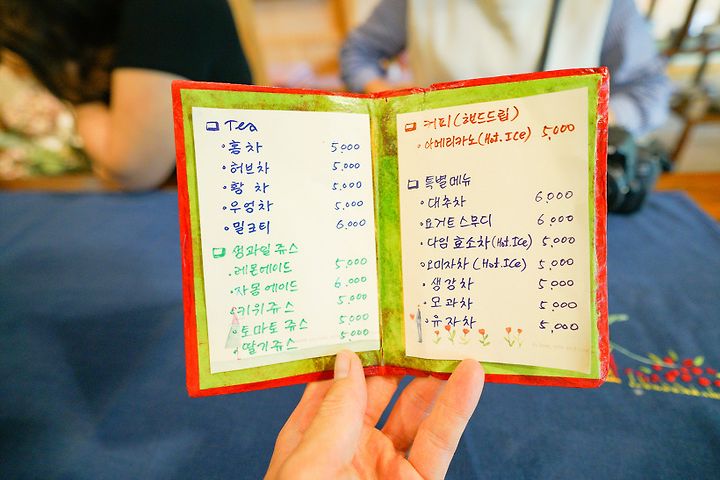 Tea
홍차 5,000
허브차 5,000
황차 5,000
우엉차 5,000
밀크티 6,000
생과일쥬스
레몬에이드 5,000
자몽에이드 6,000
키위쥬스 5,000
토마토쥬스 5,000
딸기쥬스 5,000
커피(핸드드립)
아메리카노(Hot.ICe) 5,000
특별메뉴
대추차 6,000
요거트스무디 6,000
다임효소차(Hot.ICe) 5,000
오미자차(Hot.ICe) 5,000
생강차 5,000
모과차 5,000
유자차 5,000